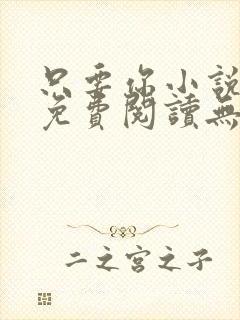 只要你小說
免費閱讀無
二之宮之子